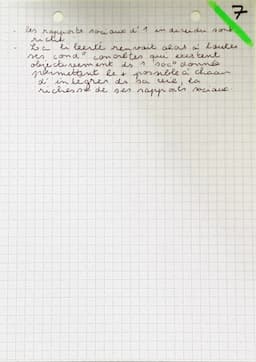 7
- les rapports sociaux d' 1 individu sont
riches
- Loc la liberté renvoie alors à toutes
ses cond° concrètes qui existent
objectivement ds 1 soc° donnée
permettant le + possible à chacun
d'intégrer ds sa vie, la
richesse de ses rapports sociaux.